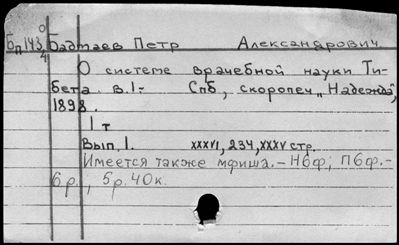 Бп 143
0
4
Бадмаев Петр Александрович
О системе врачебной науки Ти-
бета. в.1- Спб, скоропеч. "Надежда",
1898.
1 т
Вып. 1. XXXVI, 234, XXXV стр.
Имеется также мфиша.-Нбф; Пбф.-
6р., 5р.40к.